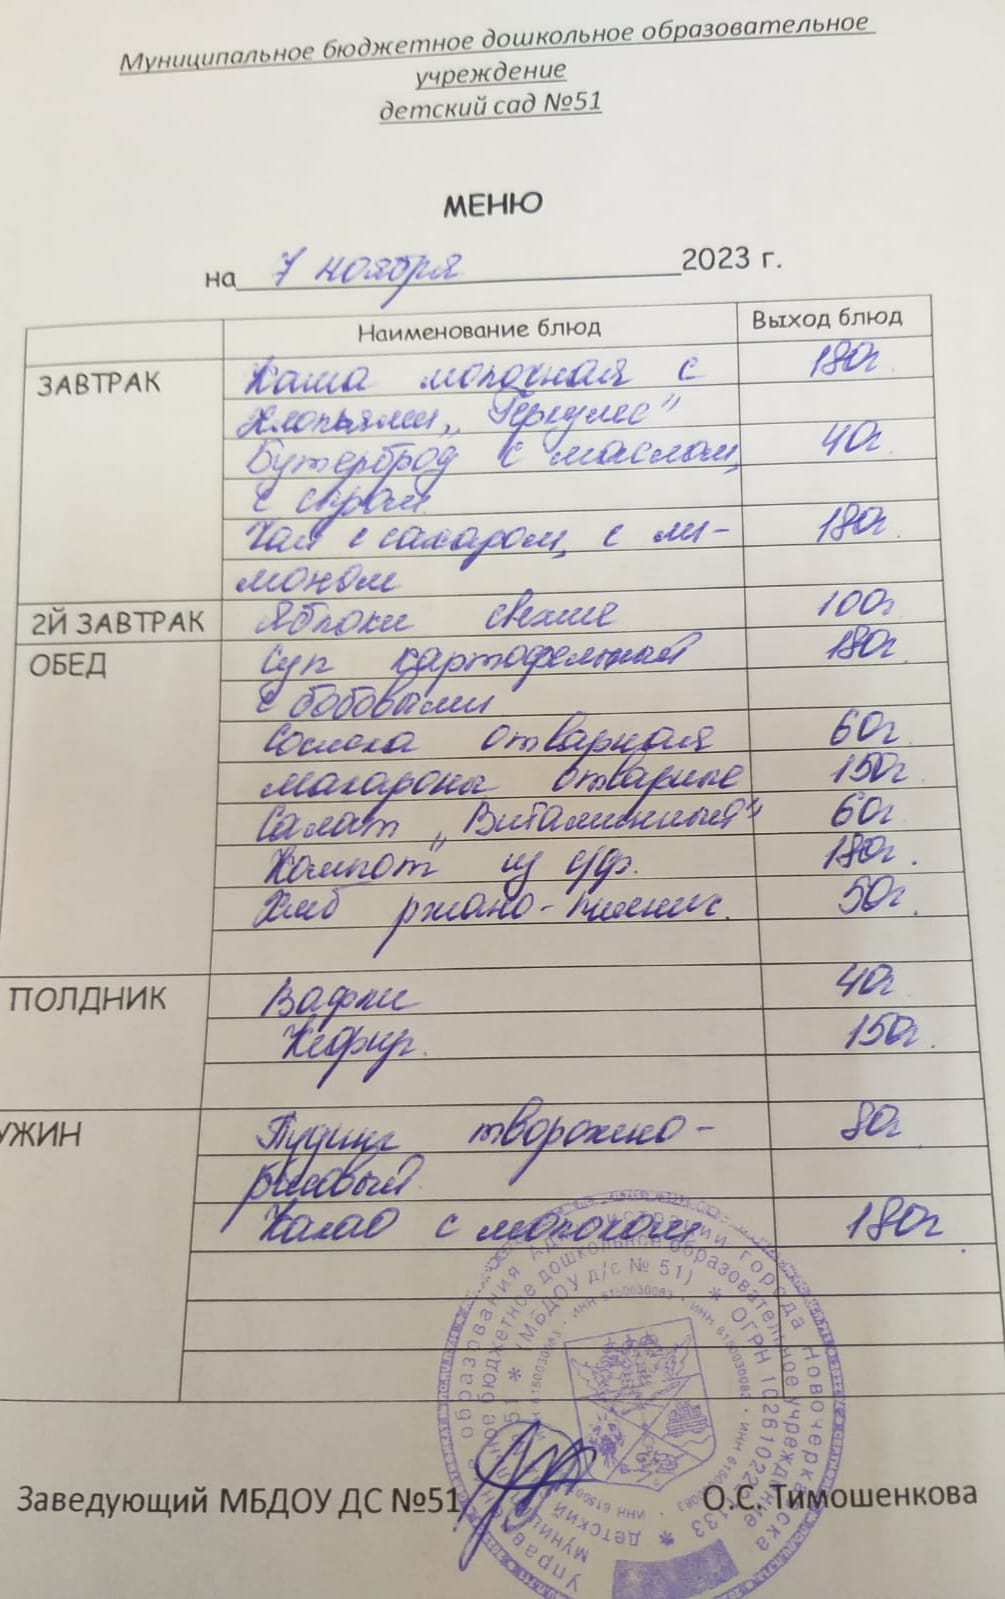 Муниципальное бюджетное дошкольное образовательное
учреждение
детский сад №51
МЕНЮ
на 7 ноября 2023 г.
Наименование блюд Выход блюд
ЗАВТРАК Каша молочная с 180г.
хлопьями „Геркулес"
Бутерброд с маслом, 40г.
с сыром
Чай с сахаром, с ли- 180г.
моном
2Й ЗАВТРАК Яблоки свежие 100г
ОБЕД Суп картофельный 180г.
с бобовыми
Сосиска отварная 60г.
Макароны отварные 150г
Салат „Витаминный" 60г
Компот из с/ф. 180г.
Хлеб ржано-пшенич. 50г.
ПОЛДНИК Вафли 40г
Кефир. 150г.
УЖИН Пудинг творожно- 80г
рисовый
Какао с молоком 180г.
Заведующий МБДОУ ДС №51 О.С. Тимошенкова
образования Администрации города Новочеркасска
бюджетное дошкольное образовательное учреждение
детский
(МБДОУ д/с № 51) * ОГРН 1026102224133 *
ИНН 6150030083